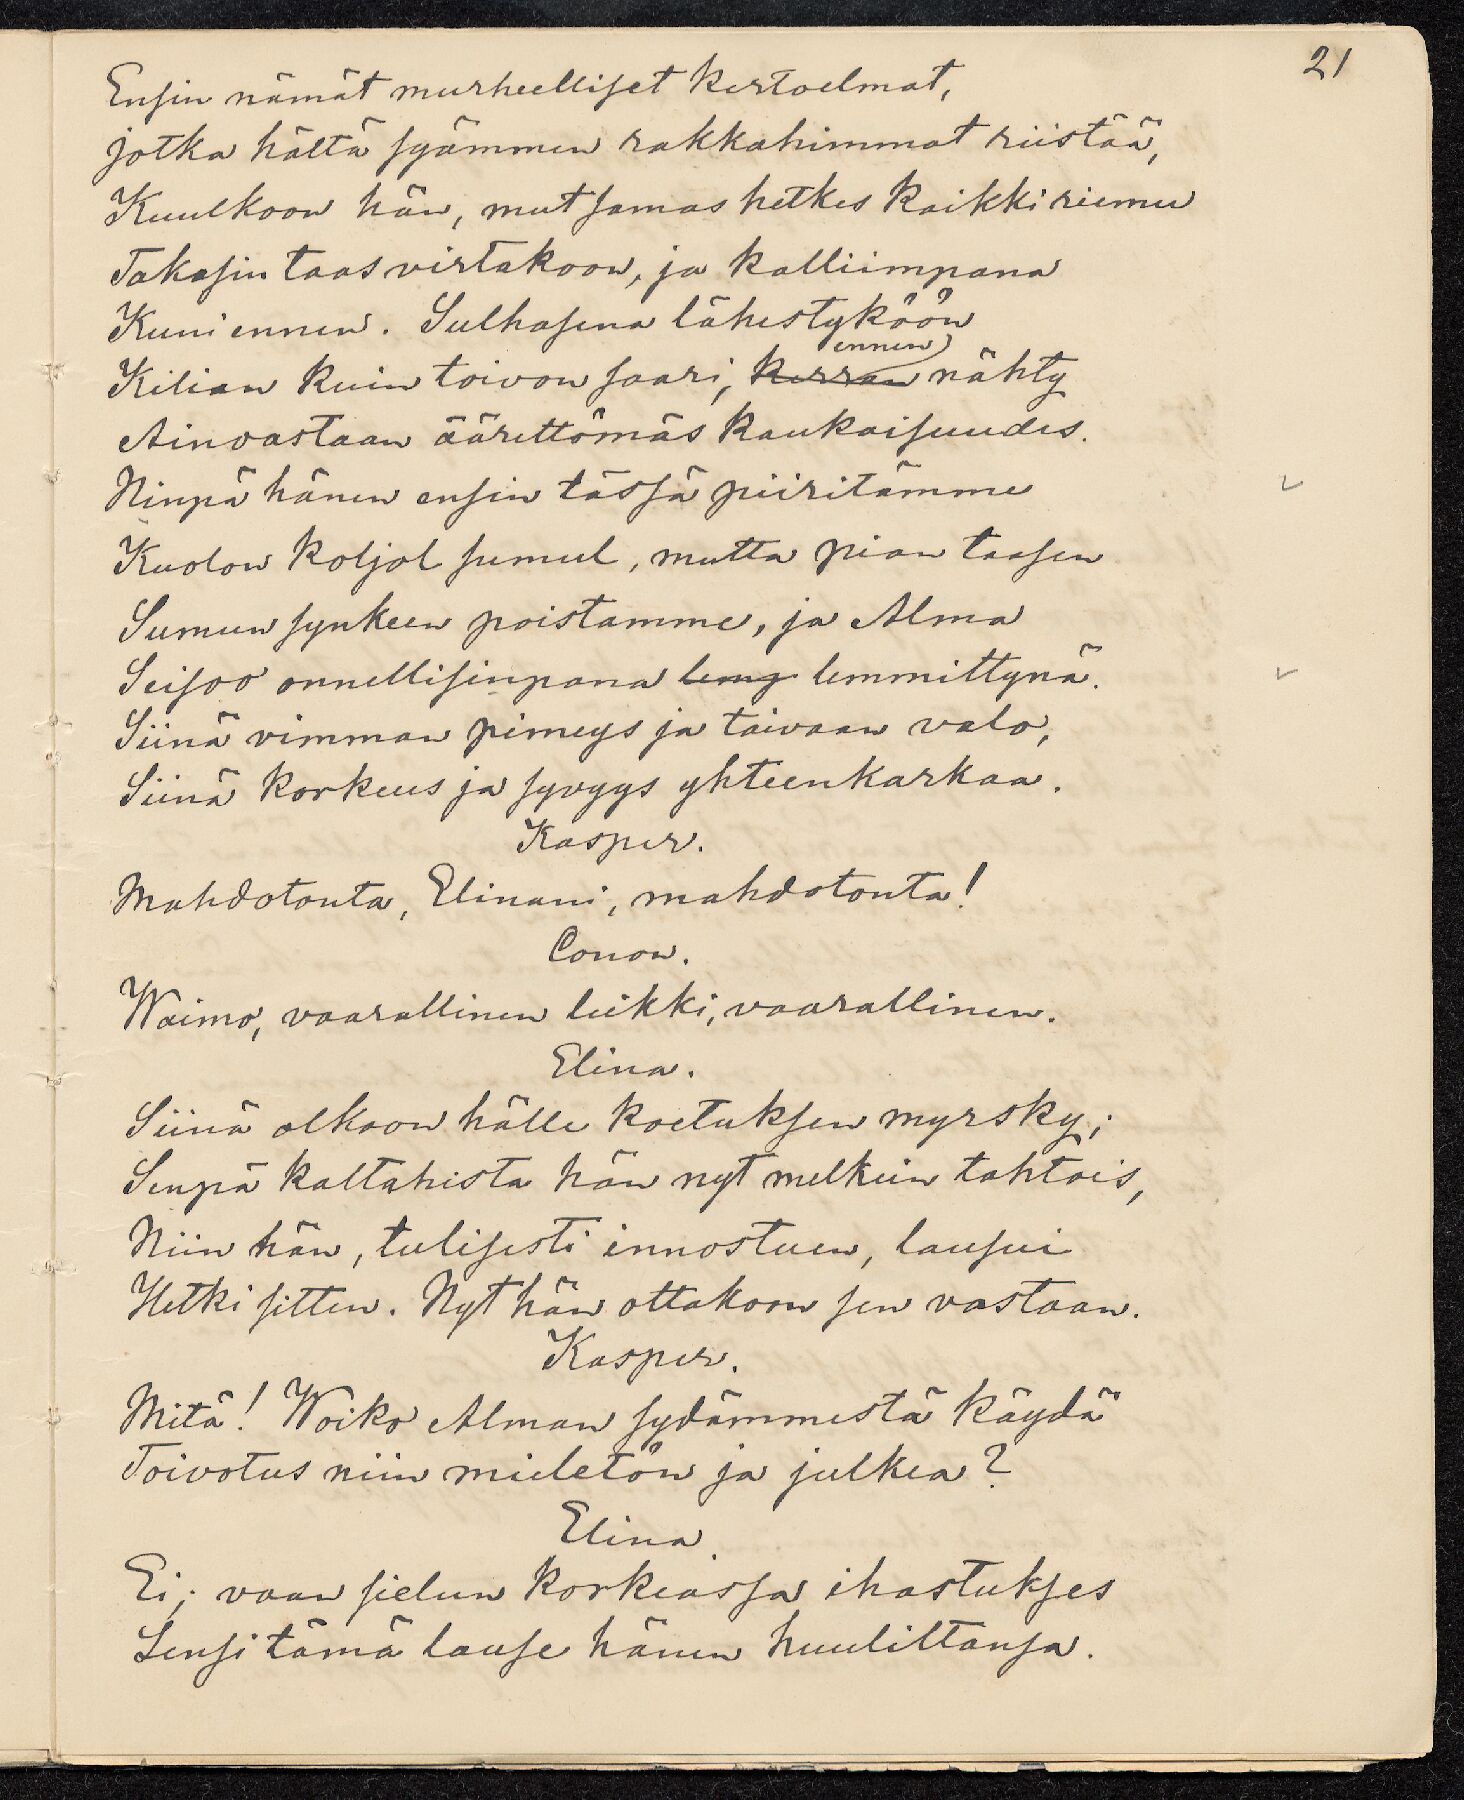 21
Ensin nämät murheelliset kertoelmat,
jotka hältä syämmen rakkahimmat riistää,
Kuulkoon hän, mut samas hetkes kaikki riemu
Takasin taas virtakoon, ja kalliimpana
Kuni ennen. Sulhasena lähestyköön
ennen
Kilian kuin toivon saari, kerran nähty
Ainoastaan äärettömäs kaukaisuudes.
Ninpä hänen ensin tässä piiritämme
Kuolon koljol sumul, mutta pian taasen
Sumun synkeen poistamme, ja Alma
Seisoo onnellisinpana lemmittynä.
Siinä vimman pimeys ja taivaan valo,
Siinä korkeus ja syvyys yhteenkarkaa.
Kasper.
Mahdotonta, Elinani, mahdotonta!
Conon.
Waimo, vaarallinen leikki, vaarallinen.
Elina.
Siinä olkoon hälle koetuksen myrsky;
Senpä kaltahista hän nyt melkein tahtois,
Niin hän, tulisesti innostuen, lausui
Hetki sitten. Nyt hän ottakoon sen vastaan.
Kasper.
Mitä! Woiko Alman sydämmestä käydä
Toivotus niin mieletön ja julkea?
Elina.
Ei; vaan sielun korkeassa ihastukses
Lensi tämä lause hänen huuliltansa.